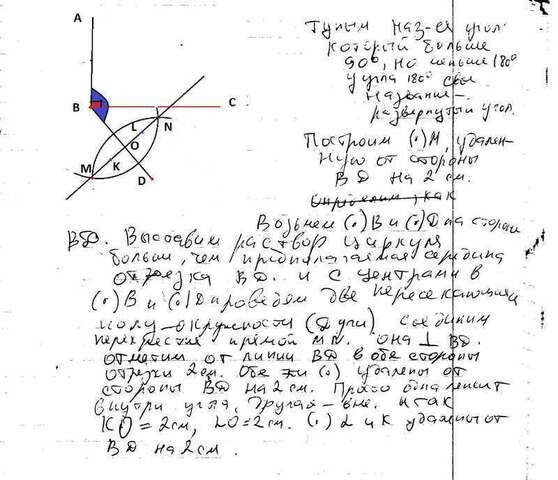 A
B
C
L
N
O
M
K
D
Тупым наз-ся угол
который больше
90°, но меньше 180°
у угла 180° свое
название -
развернутый угол.
Построим (.) М, удален-
ную от стороны
BD на 2 см.
Определим, как
Возьмем (.) В и (.) D на стороне
BD. Выставим раствор циркуля
больше, чем предполагаемая середина
отрезка BD. и с центрами в
(.) В и (.) D проведем две пересекающиеся
полу-окружности (Дуги) соединим
перекрестия прямой MN. она ⊥ BD.
отметим от линии BD в обе стороны
отрезки 2 см. Обе эти (.) удалены от
стороны BD на 2 см. Просто одна лежит
внутри угла, другая - вне. итак
KO = 2 см, LO = 2 см. (.) L и K удалены от
BD на 2 см.